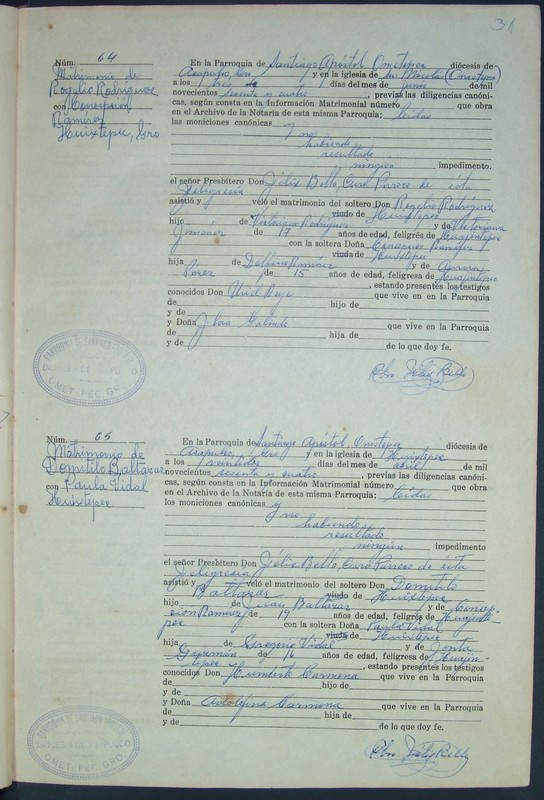 31
Núm. 64
Matrimonio de
Rogelio Rodríguez
con Concepción
Ramírez
Huixtepec, Gro
En la Parroquia de Santiago Apóstol Ometepec diócesis de
Acapulco, Gro y en la iglesia de Sn. Nicolás (Ometepec)
a los tres días del mes de junio de mil
novecientos sesenta y cuatro, previas las diligencias canóni-
cas, según consta en la Información Matrimonial número que obra
en el Archivo de la Notaría de esta misma Parroquia; leídas
las moniciones canónicas
y no
habiendo
resultado
ningún impedimento.
el señor Presbítero Don Félix Bello, Cura Párroco de esta
feligresía
asistió y veló el matrimonio del soltero Don Rogelio Rodríguez
viudo de Huixtepec
hijo de Victoriano Rodríguez y de Victoriana
Jiménez de 17 años de edad, feligrés de Huajintepec
con la soltera Doña Concepción Ramírez
viuda de Huixtepec
hija de Ramírez y de Aurora
Pérez de 15 años de edad, feligresa de Huajintepec
, estando presentes los testigos
conocidos Don Uriel que vive en en la Parroquia
de hijo de
y de
y Doña Galindo que vive en la Parroquia
de hija de
y de de lo que doy fe.
Pbro. Félix Bello
PARROQUIA DE SANTIAGO APOSTOL
DIOCESIS DE ACAPULCO
OMETEPEC, GRO.
Núm. 65
Matrimonio de
Domitilo Baltazar
con Paula Vidal
Huixtepec
En la Parroquia de Santiago Apóstol, Ometepec diócesis de
Acapulco, Gro y en la iglesia de Huixtepec
a los veintidós días del mes de abril de mil
novecientos sesenta y cuatro, previas las diligencias canóni-
cas, según consta en la Información Matrimonial número que obra
en el Archivo de la Notaría de esta misma Parroquia; leídas
las moniciones canónicas y
no
habiendo
resultado
ningún impedimento
el señor Presbítero Don Félix Bello, Cura Párroco de esta
feligresía
asistió y veló el matrimonio del soltero Don Domitilo
Baltazar viudo de Huixtepec
hijo de Juan Baltazar y de Concep-
cion Ramírez de 19 años de edad, feligrés de Huajinte-
pec con la soltera Doña Paula Vidal
viuda de Huixtepec
hija de Gregorio Vidal y de
Guzmán de 16 años de edad, feligresa de Huajin-
tepec, estando presentes los testigos
conocidos Don Humberto Carmona que vive en la Parroquia
de hijo de
y de
y Doña Adolfina Carmona que vive en la Parroquia
de hija de
y de de lo que doy fe.
Pbro. Félix Bello
PARROQUIA DE SANTIAGO APOSTOL
DIOCESIS DE ACAPULCO
OMETEPEC, GRO.